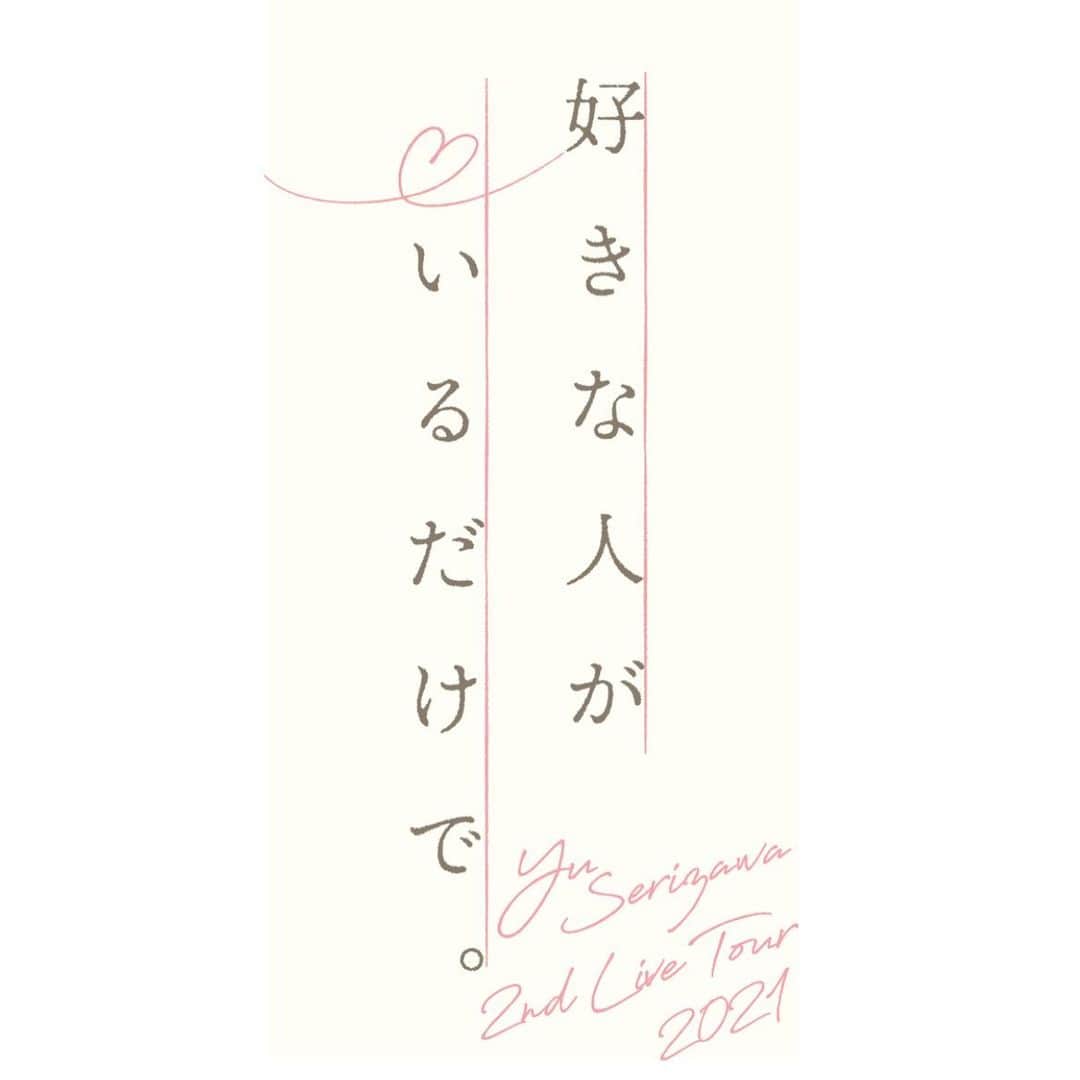 好きな人が
いるだけで。
Yu
Serizawa
2nd Live Tour
2021